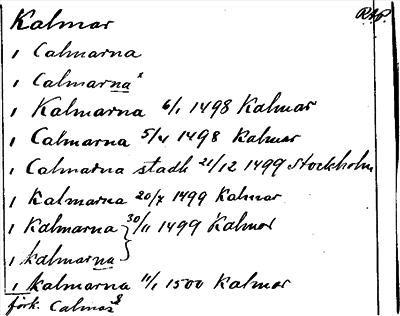 Kalmar R.A.P.
i Calmarna
i Calmarna x
i Kalmarna 6/1 1498 Kalmar
i Calmarna 5/4 1498 Kalmar
i Calmarna stadh 21/12 1499 Stockholm
i Kalmarna 20/7 1499 Kalmar
i Kalmarna } 30/11 1499 Kalmar
i kalmarna
i kalmarna 11/1 1500 Kalmar
förk. Calmar